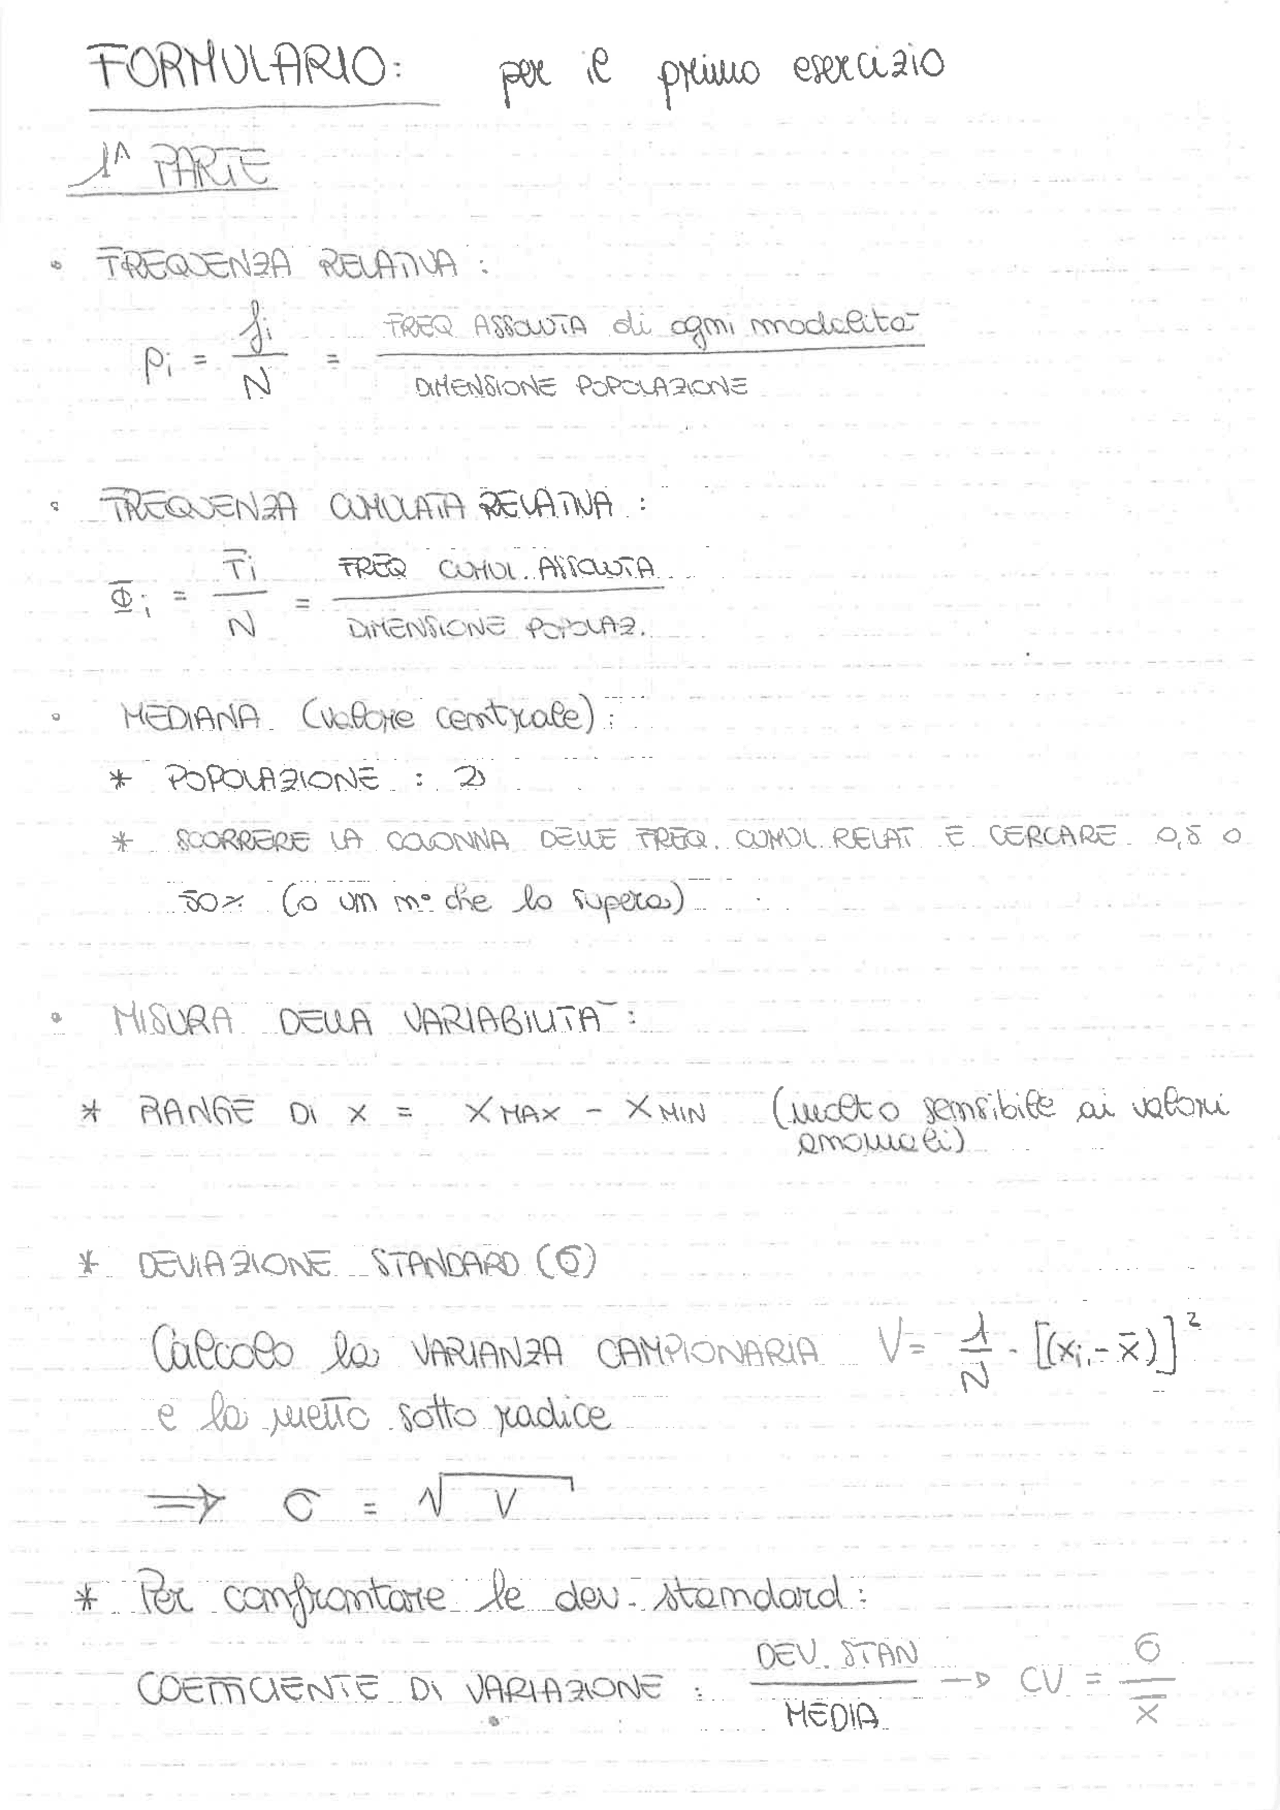 FORMULARIO: per il primo esercizio
1^ PARTE
• FREQUENZA RELATIVA:
pi = fi / N = FREQ ASSOLUTA di ogni modalità / DIMENSIONE POPOLAZIONE
• FREQUENZA CUMULATA RELATIVA:
Φi = Fi / N = FREQ CUMUL. ASSOLUTA / DIMENSIONE POPOLAZ.
• MEDIANA (valore centrale):
* POPOLAZIONE : 2
* SCORRERE LA COLONNA DELLE FREQ. CUMUL. RELAT E CERCARE 0,5 O
50% (o un n° che lo supera)
• MISURA DELLA VARIABILITÀ:
* RANGE DI x = X MAX - X MIN (molto sensibile ai valori
anomali)
* DEVIAZIONE STANDARD (σ)
Calcolo la VARIANZA CAMPIONARIA V = 1/N · [(xi - x̄)]²
e la metto sotto radice
⇒ σ = √V
* Per confrontare le dev. standard:
COEFFICIENTE DI VARIAZIONE : DEV. STAN / MEDIA → CV = σ / x̄